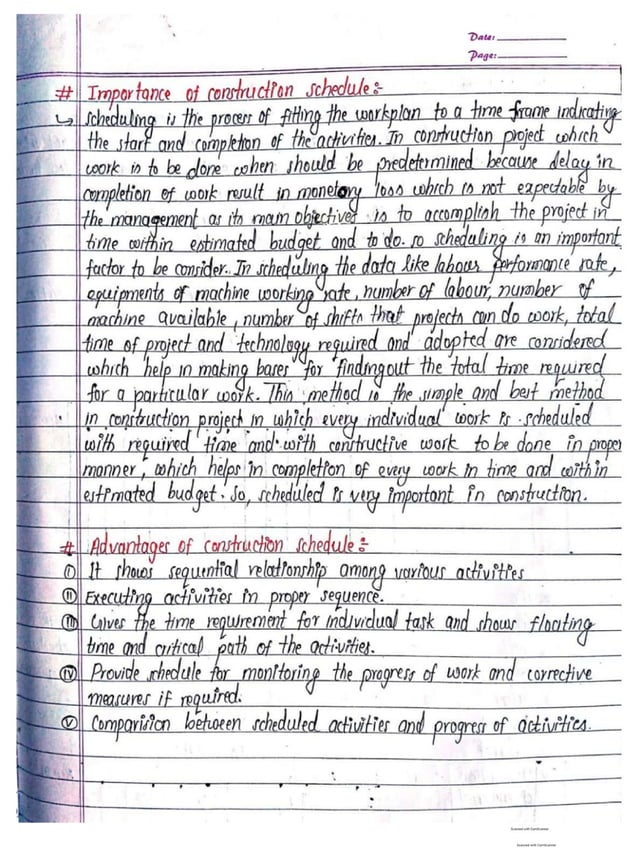 Date:
Page:
# Importance of construction schedule:-
↳ Scheduling is the process of fitting the workplan to a time frame indicating
the start and completion of the activities. In construction project which
work is to be done when should be predetermined because delay in
completion of work result in monetory loss which is not expectable by
the management as its main objectives is to accomplish the project in
time within estimated budget and to do. so scheduling is an important
factor to be consider. In scheduling the data like labour performance rate,
equipments of machine working rate, number of labour, number of
machine available, number of shifts that projects can do work, total
time of project and technology required and adopted are considered
which help in making bases for findingout the total time required
for a particular work. This method is the simple and best method
in construction project in which every individual work is scheduled
with required time and with constructive work to be done in proper
manner, which helps in completion of every work in time and within
estimated budget. So, scheduled is very important in construction.
# Advantages of construction schedule:-
(i) It shows sequential relationship among various activities
(ii) Executing activities in proper sequence.
(iii) Gives the time requirement for individual task and shows floating
time and critical path of the activities.
(iv) Provide schedule for monitoring the progress of work and corrective
measures if required.
(v) Comparision between scheduled activities and progress of activities.
Scanned with CamScanner
Scanned with CamScanner